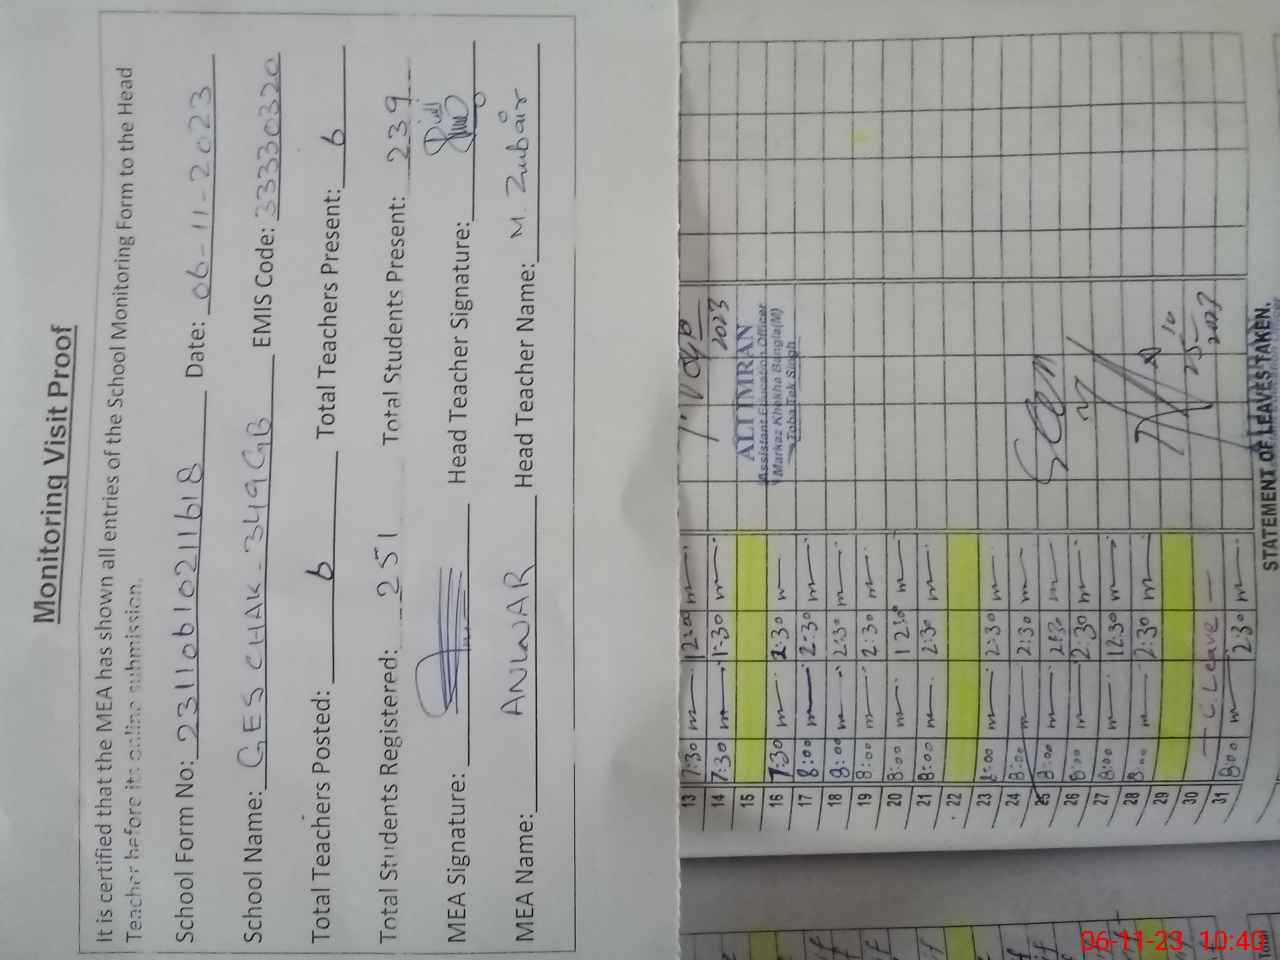 Monitoring Visit Proof
It is certified that the MEA has shown all entries of the School Monitoring Form to the Head
Teacher before its online submission.
School Form No: 23110610211618 Date: 06-11-2023
School Name: GES CHAK-349GB EMIS Code: 33330320
Total Teachers Posted: 6 Total Teachers Present: 6
Total Students Registered: 251 Total Students Present: 239
MEA Signature: Head Teacher Signature:
MEA Name: ANWAR Head Teacher Name: M. Zubair
13 7:30 12:00
2023
14 7:30 1:30
15
ALI IMRAN
Assistant Education Officer
Markaz Khekha Bangla(M)
Toba Tek Singh
16 7:30 2:30
17 8:00 2:30
18 8:00 2:30
19 8:00 2:30
20 8:00 12:30
21 8:00 2:30
22
23 8:00 2:30
24 8:00 2:30
25 8:00 2:30
Seen
26 8:00 2:30
27 8:00 12:30
28 8:00 2:30
29
25-10
2023
30 C. Leave
31 8:00 2:30
STATEMENT OF LEAVES TAKEN.
Total
06-11-23 10:40